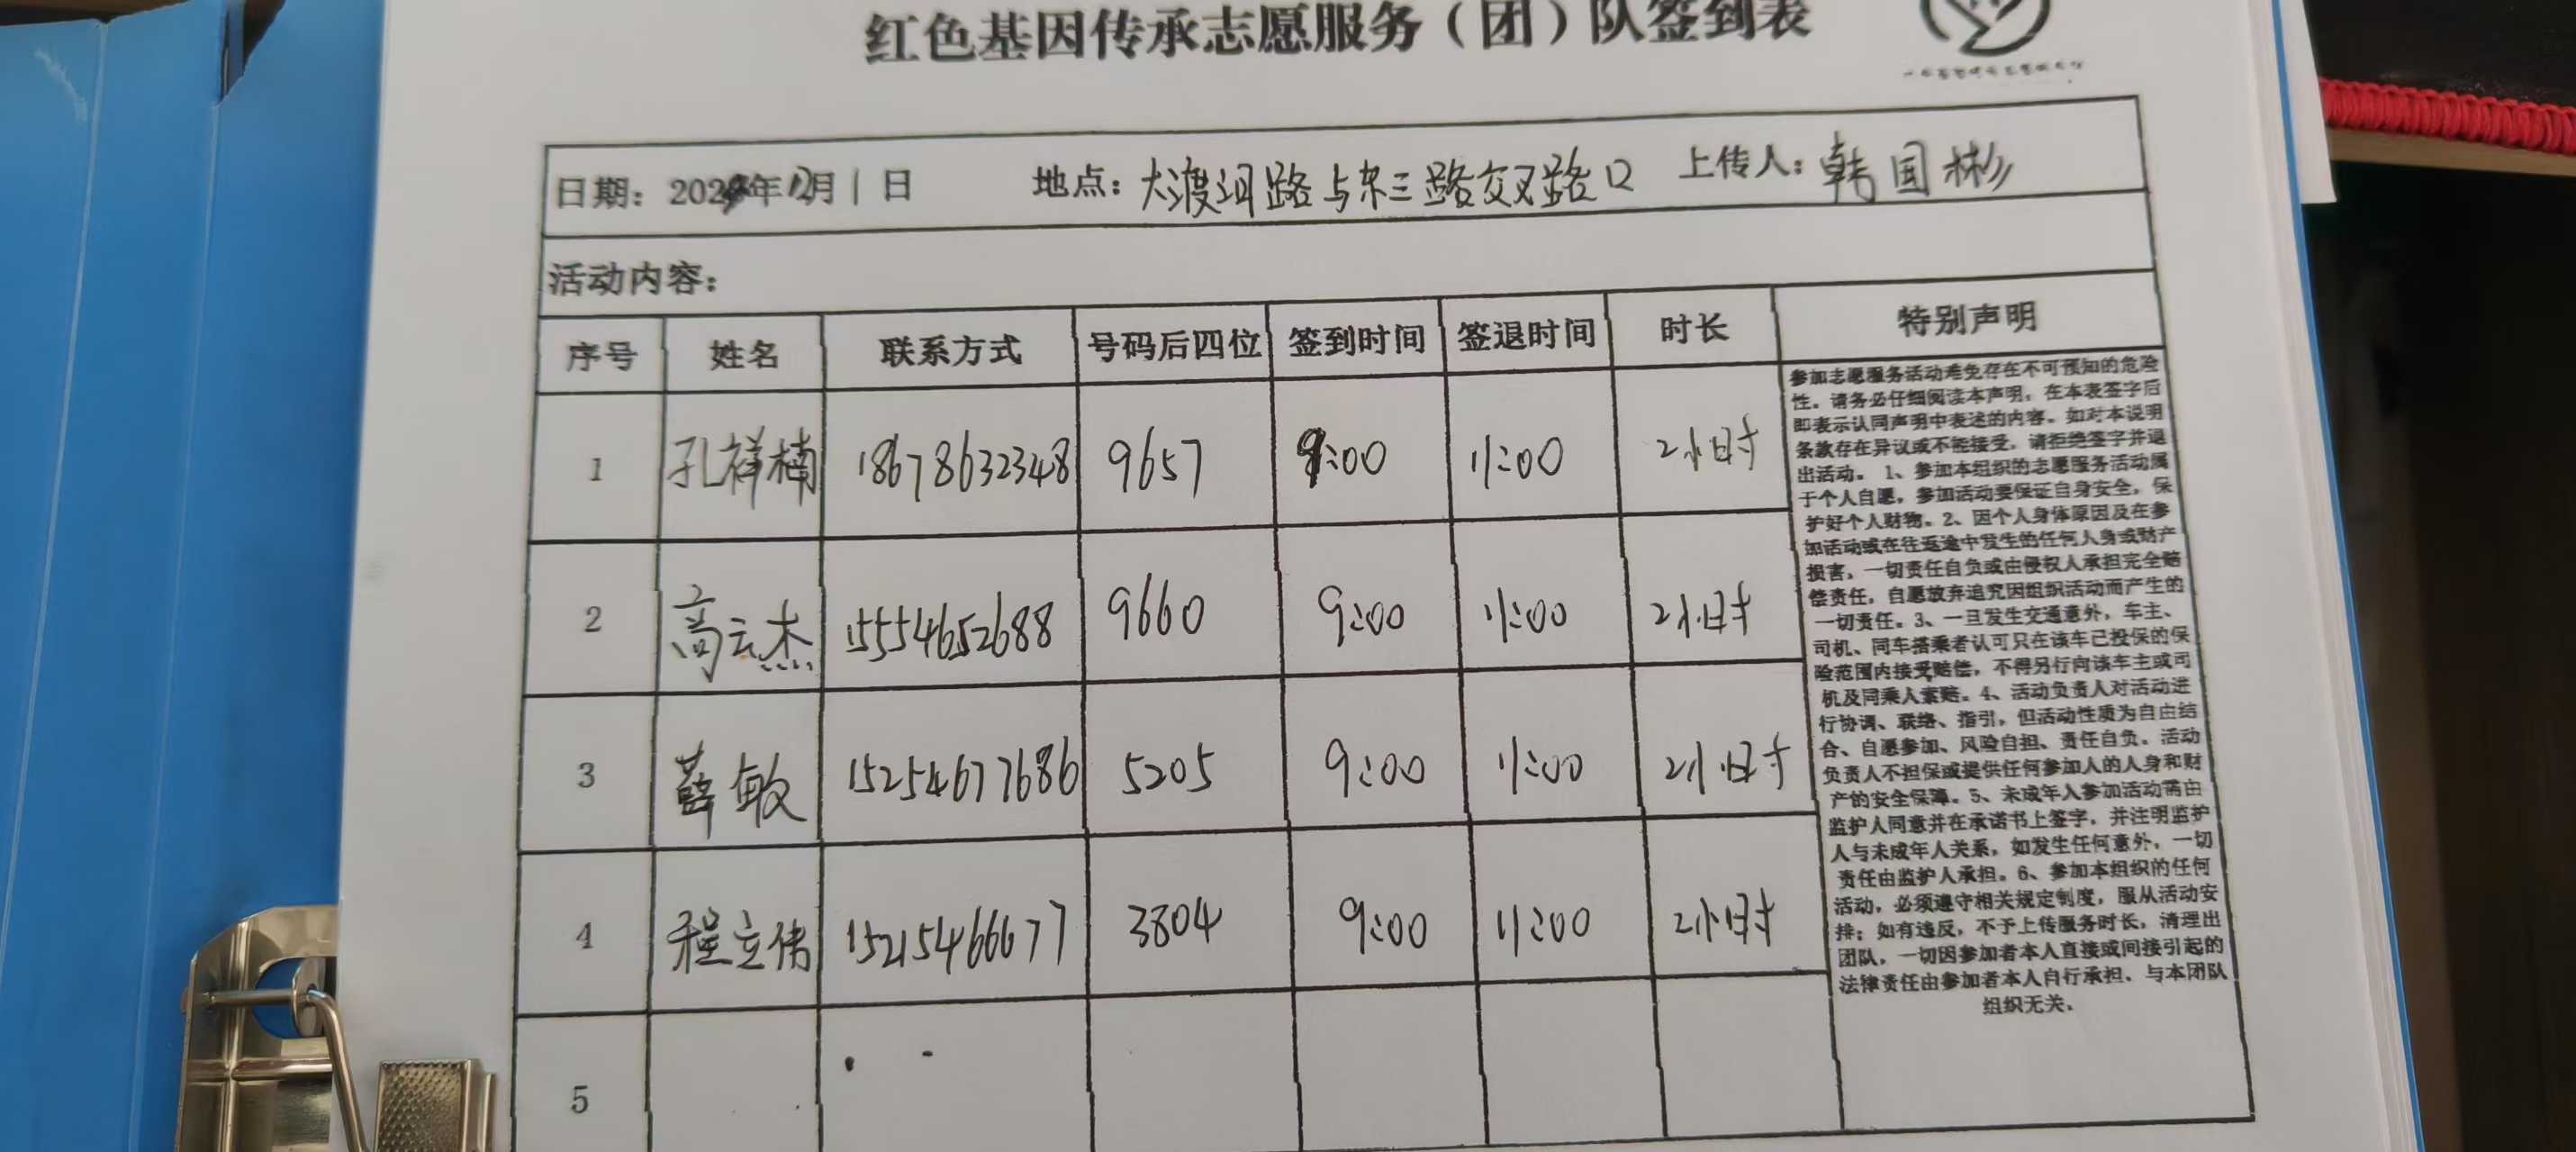 红色基因传承志愿服务（团）队签到表
日期：2024年12月1日 地点：大渡河路与东三路交叉路口 上传人：韩国彬
活动内容：
序号 姓名 联系方式 号码后四位 签到时间 签退时间 时长 特别声明
1 孔祥楠 18678632348 9657 9:00 11:00 2小时
2 高云杰 15554652688 9660 9:00 11:00 2小时
3 薛敏 15254677686 5205 9:00 11:00 2小时
4 程立伟 15215466677 3804 9:00 11:00 2小时
5
参加志愿服务活动难免存在不可预知的危险
性。请务必仔细阅读本声明，在本表签字后
即表示认同声明中表述的内容。如对本说明
条款存在异议或不能接受，请拒绝签字并退
出活动。 1、参加本组织的志愿服务活动属
于个人自愿，参加活动要保证自身安全，保
护好个人财物。2、因个人身体原因及在参
加活动或在往返途中发生的任何人身或财产
损害，一切责任自负或由侵权人承担完全赔
偿责任，自愿放弃追究因组织活动而产生的
一切责任。3、一旦发生交通意外，车主、
司机、同车搭乘者认可只在该车已投保的保
险范围内接受赔偿，不得另行向该车主或司
机及同乘人索赔。4、活动负责人对活动进
行协调、联络、指引，但活动性质为自由结
合、自愿参加、风险自担、责任自负。活动
负责人不担保或提供任何参加人的人身和财
产的安全保障。5、未成年人参加活动需由
监护人同意并在承诺书上签字，并注明监护
人与未成年人关系，如发生任何意外，一切
责任由监护人承担。6、参加本组织的任何
活动，必须遵守相关规定制度，服从活动安
排；如有违反，不予上传服务时长，清理出
团队，一切因参加者本人直接或间接引起的
法律责任由参加者本人自行承担．与本团队
组织无关．